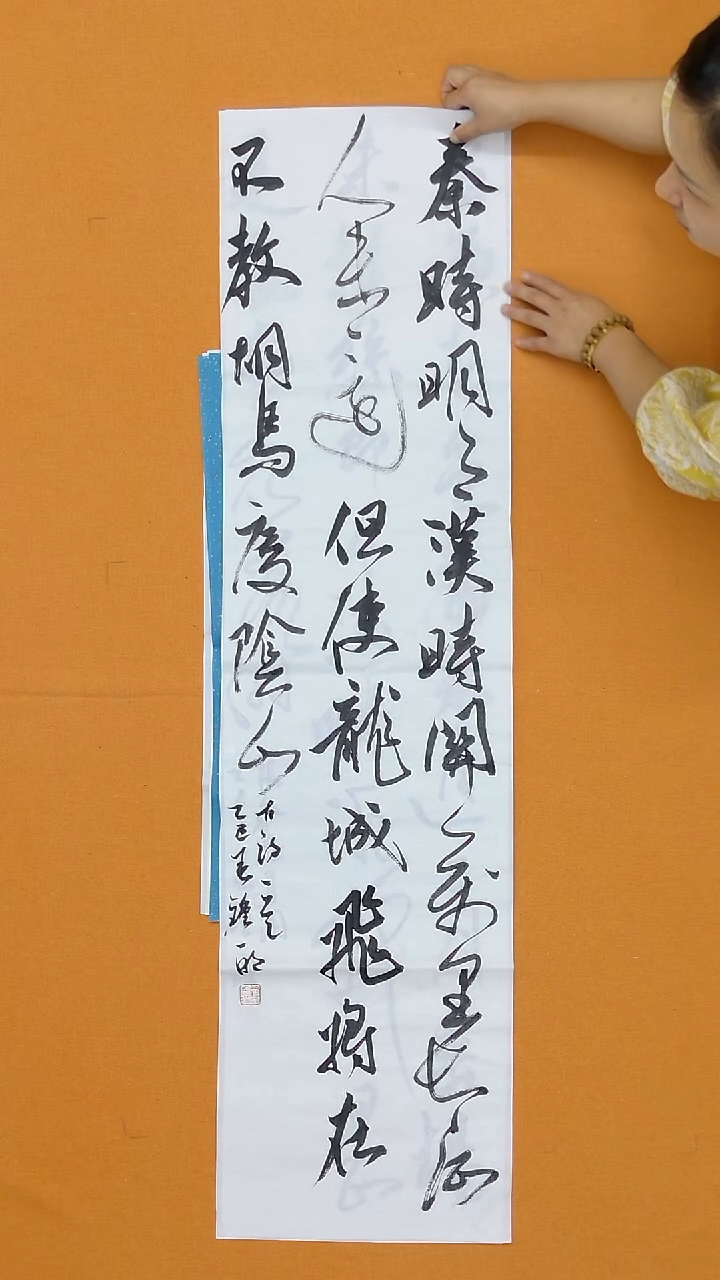 秦時明月漢時關萬里長征
人未還但使龍城飛將在
不教胡馬度陰山
古詩一首
乙巳春